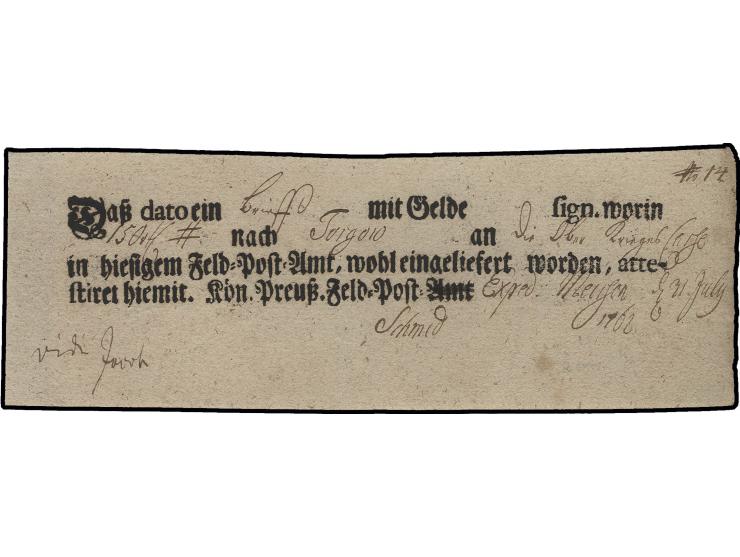 No 14
Daß dato ein Brieff mit Gelde sign. worin
nach Torgow an Die Ober Kriegs Casse
in hiesigem Feld-Post-Amt, wohl eingeliefert worden, atte-
stiret hiemit. Kön. Preuß. Feld-Post-Amt Exped. Meissen d. 21. July
Schmid 1762
vide